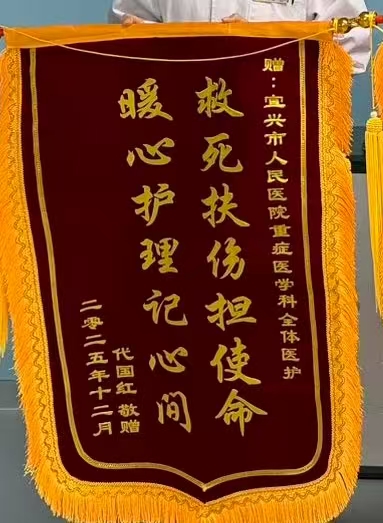 赠：宜兴市人民医院重症医学科全体医护
救死扶伤担使命
暖心护理记心间
代国红 敬赠
二零二五年十二月